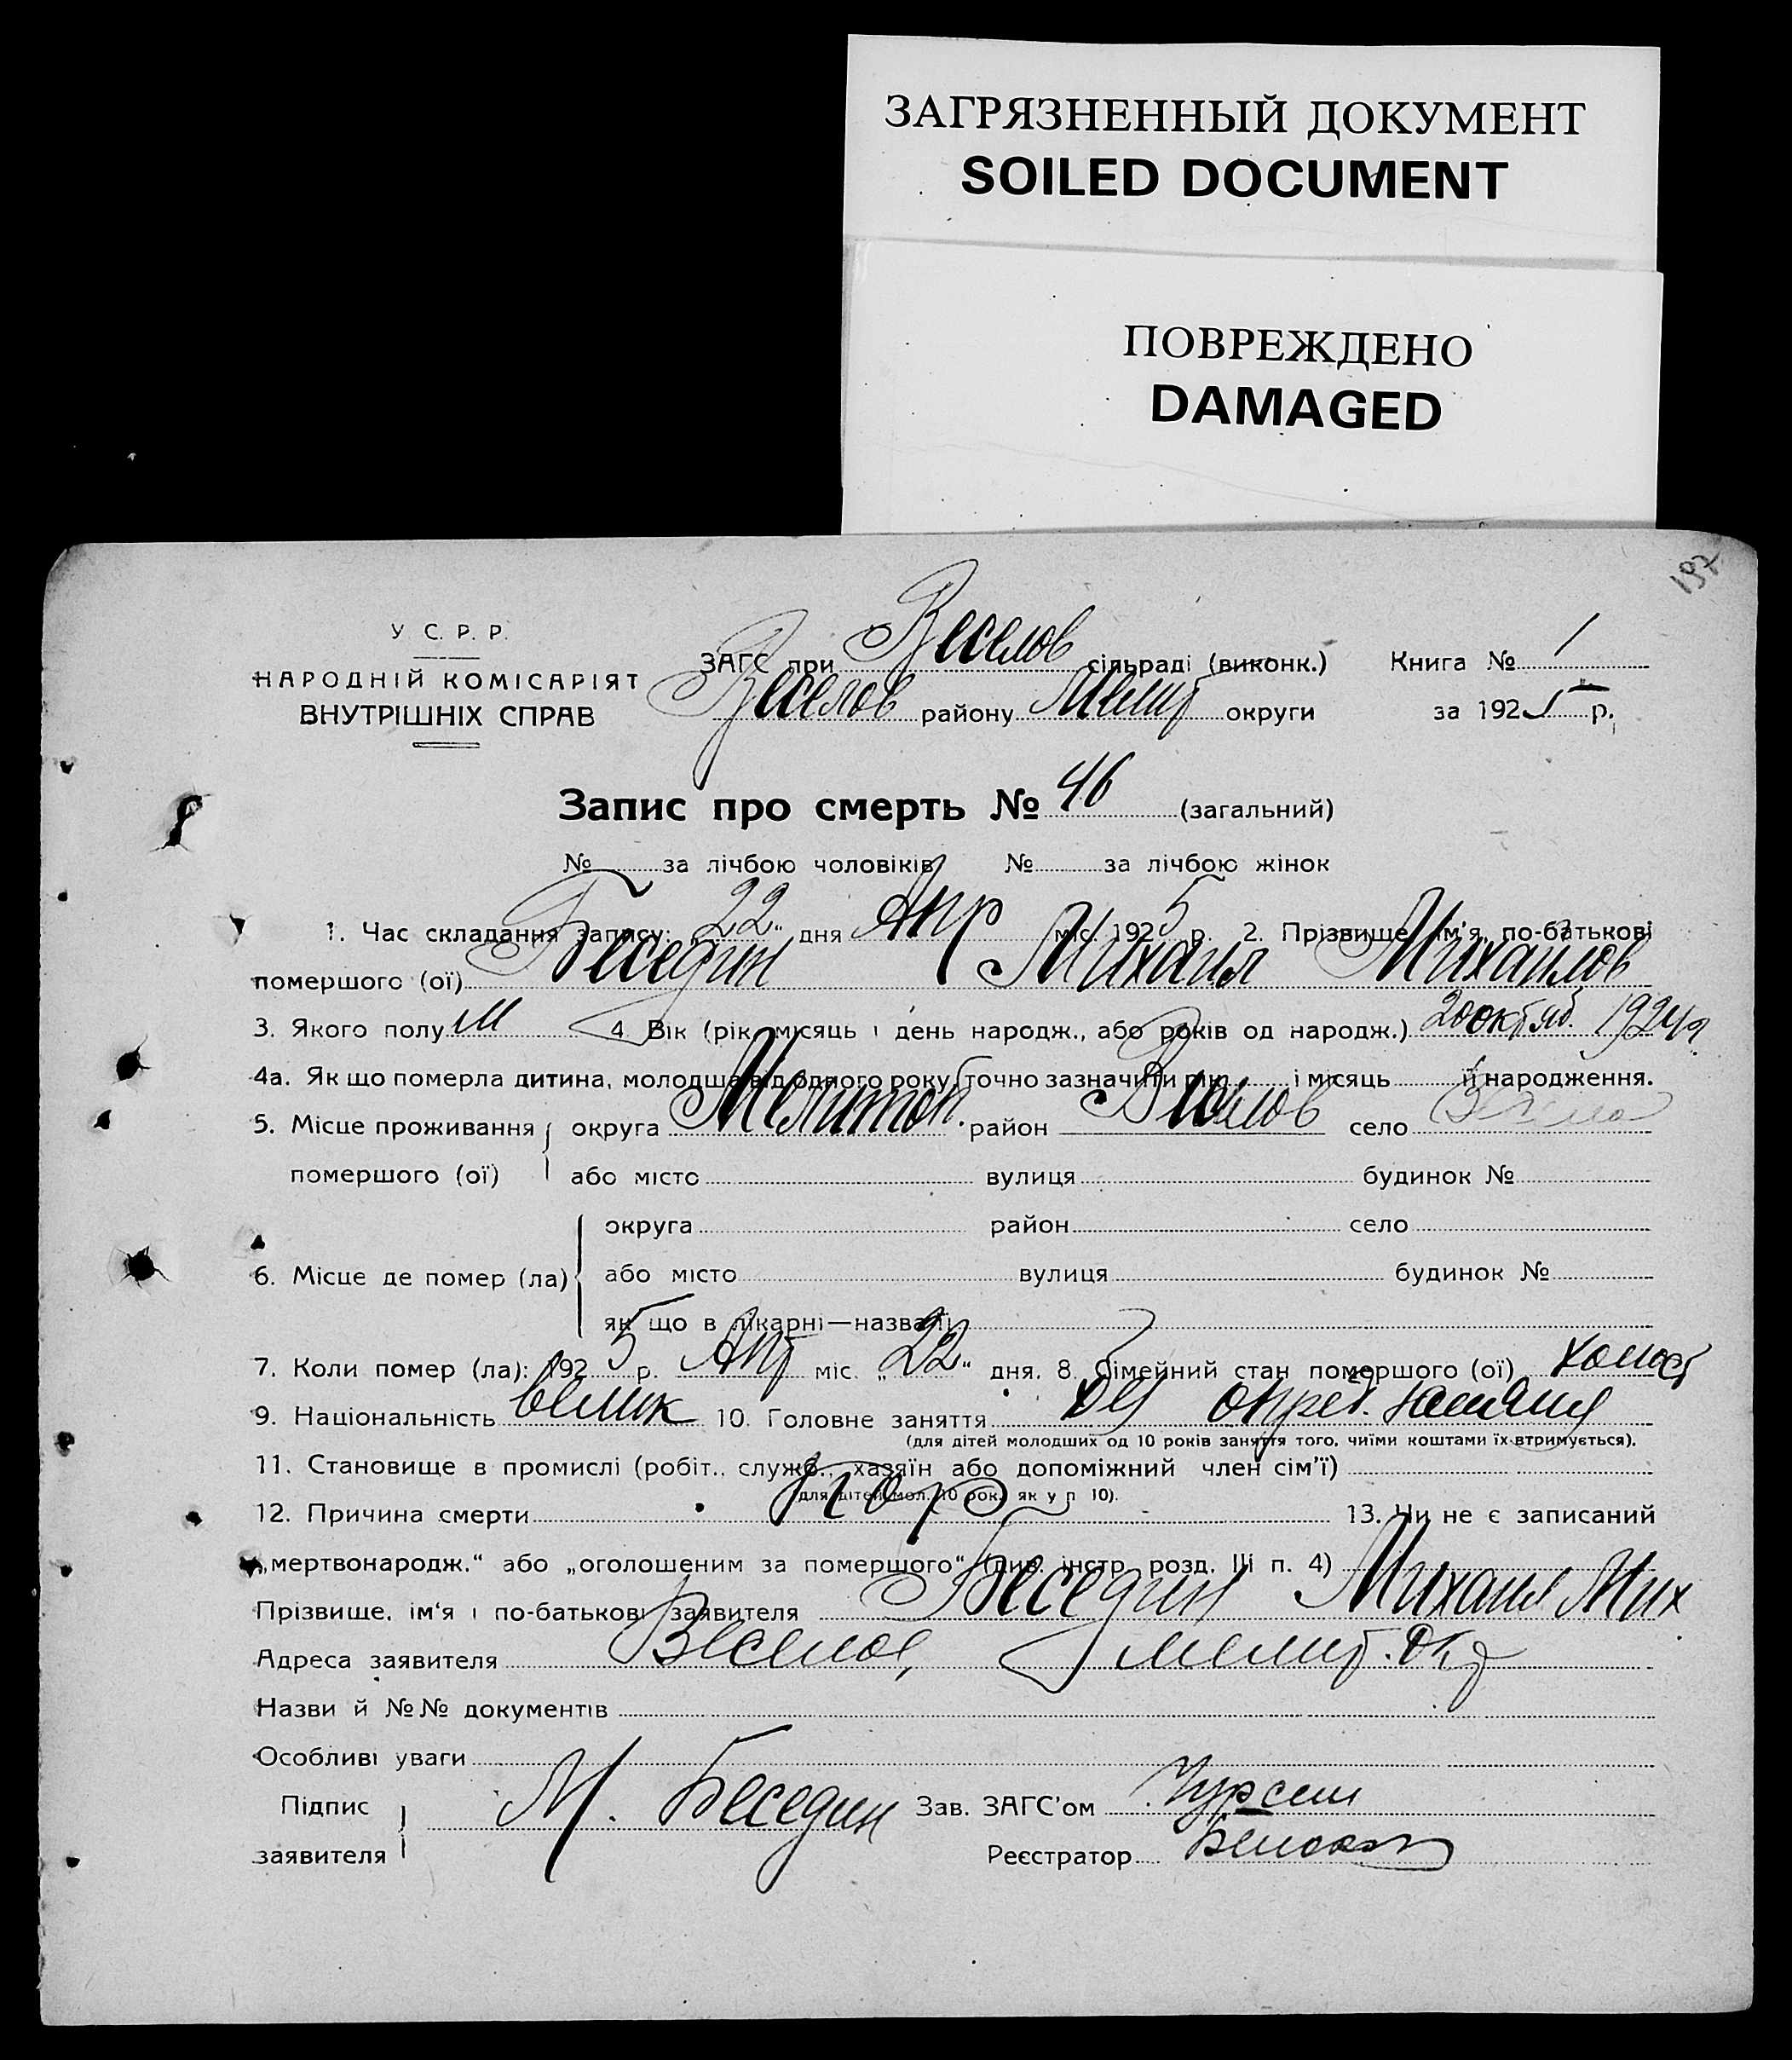 ЗАГРЯЗНЕННЫЙ ДОКУМЕНТ
SOILED DOCUMENT
ПОВРЕЖДЕНО
DAMAGED
197
У С. Р. Р.
НАРОДНІЙ КОМІСАРІЯТ
ВНУТРІШНІХ СПРАВ
ЗАГС при Веселов сільраді (виконк.) Книга № 1
Веселов району Мелит округи за 1925 р.
Запис про смерть № 46 (загальний)
№ за лічбою чоловіків № за лічбою жінок
1. Час складання запису: 22 " дня Апр міс. 1925 р. 2. Прізвище, ім'я, по-батькові
помершого (ої) Беседин Михаил Михаилов
3. Якого полу М 4. Вік (рік, місяць і день народж., або років од народж.) 20 октяб. 1924 г.
4а. Як що померла дитина, молодша від одного року, точно зазначити рік і місяць її народження.
5. Місце проживання округа Мелитоп. район Веселов село Весело
помершого (ої) або місто вулиця будинок №
округа район село
6. Місце де помер (ла) або місто вулиця будинок №
як що в лікарні—назва її
7. Коли помер (ла): 1925 р. Апр міс. „ 22 " дня. 8. Сімейний стан помершого (ої) холост
9. Національність велик 10. Головне заняття без опред. занятия
(для дітей молодших од 10 років заняття того, чиїми коштами їх втримується).
11. Становище в промислі (робіт., служб., хазяїн або допоміжний член сім'ї)
(для дітей мол. 10 рок. як у п 10).
12. Причина смерти 13. Чи не є записаний
„мертвонародж." або „оголошеним за помершого" (див. інстр. розд. III п. 4)
Прізвище, ім'я і по-батькові заявителя Беседин Михаил Мих
Адреса заявителя Веселое, Мелит. Окр
Назви й №№ документів
Особливі уваги
Підпис М. Беседин Зав. ЗАГС'ом Чурсин
заявителя Реєстратор